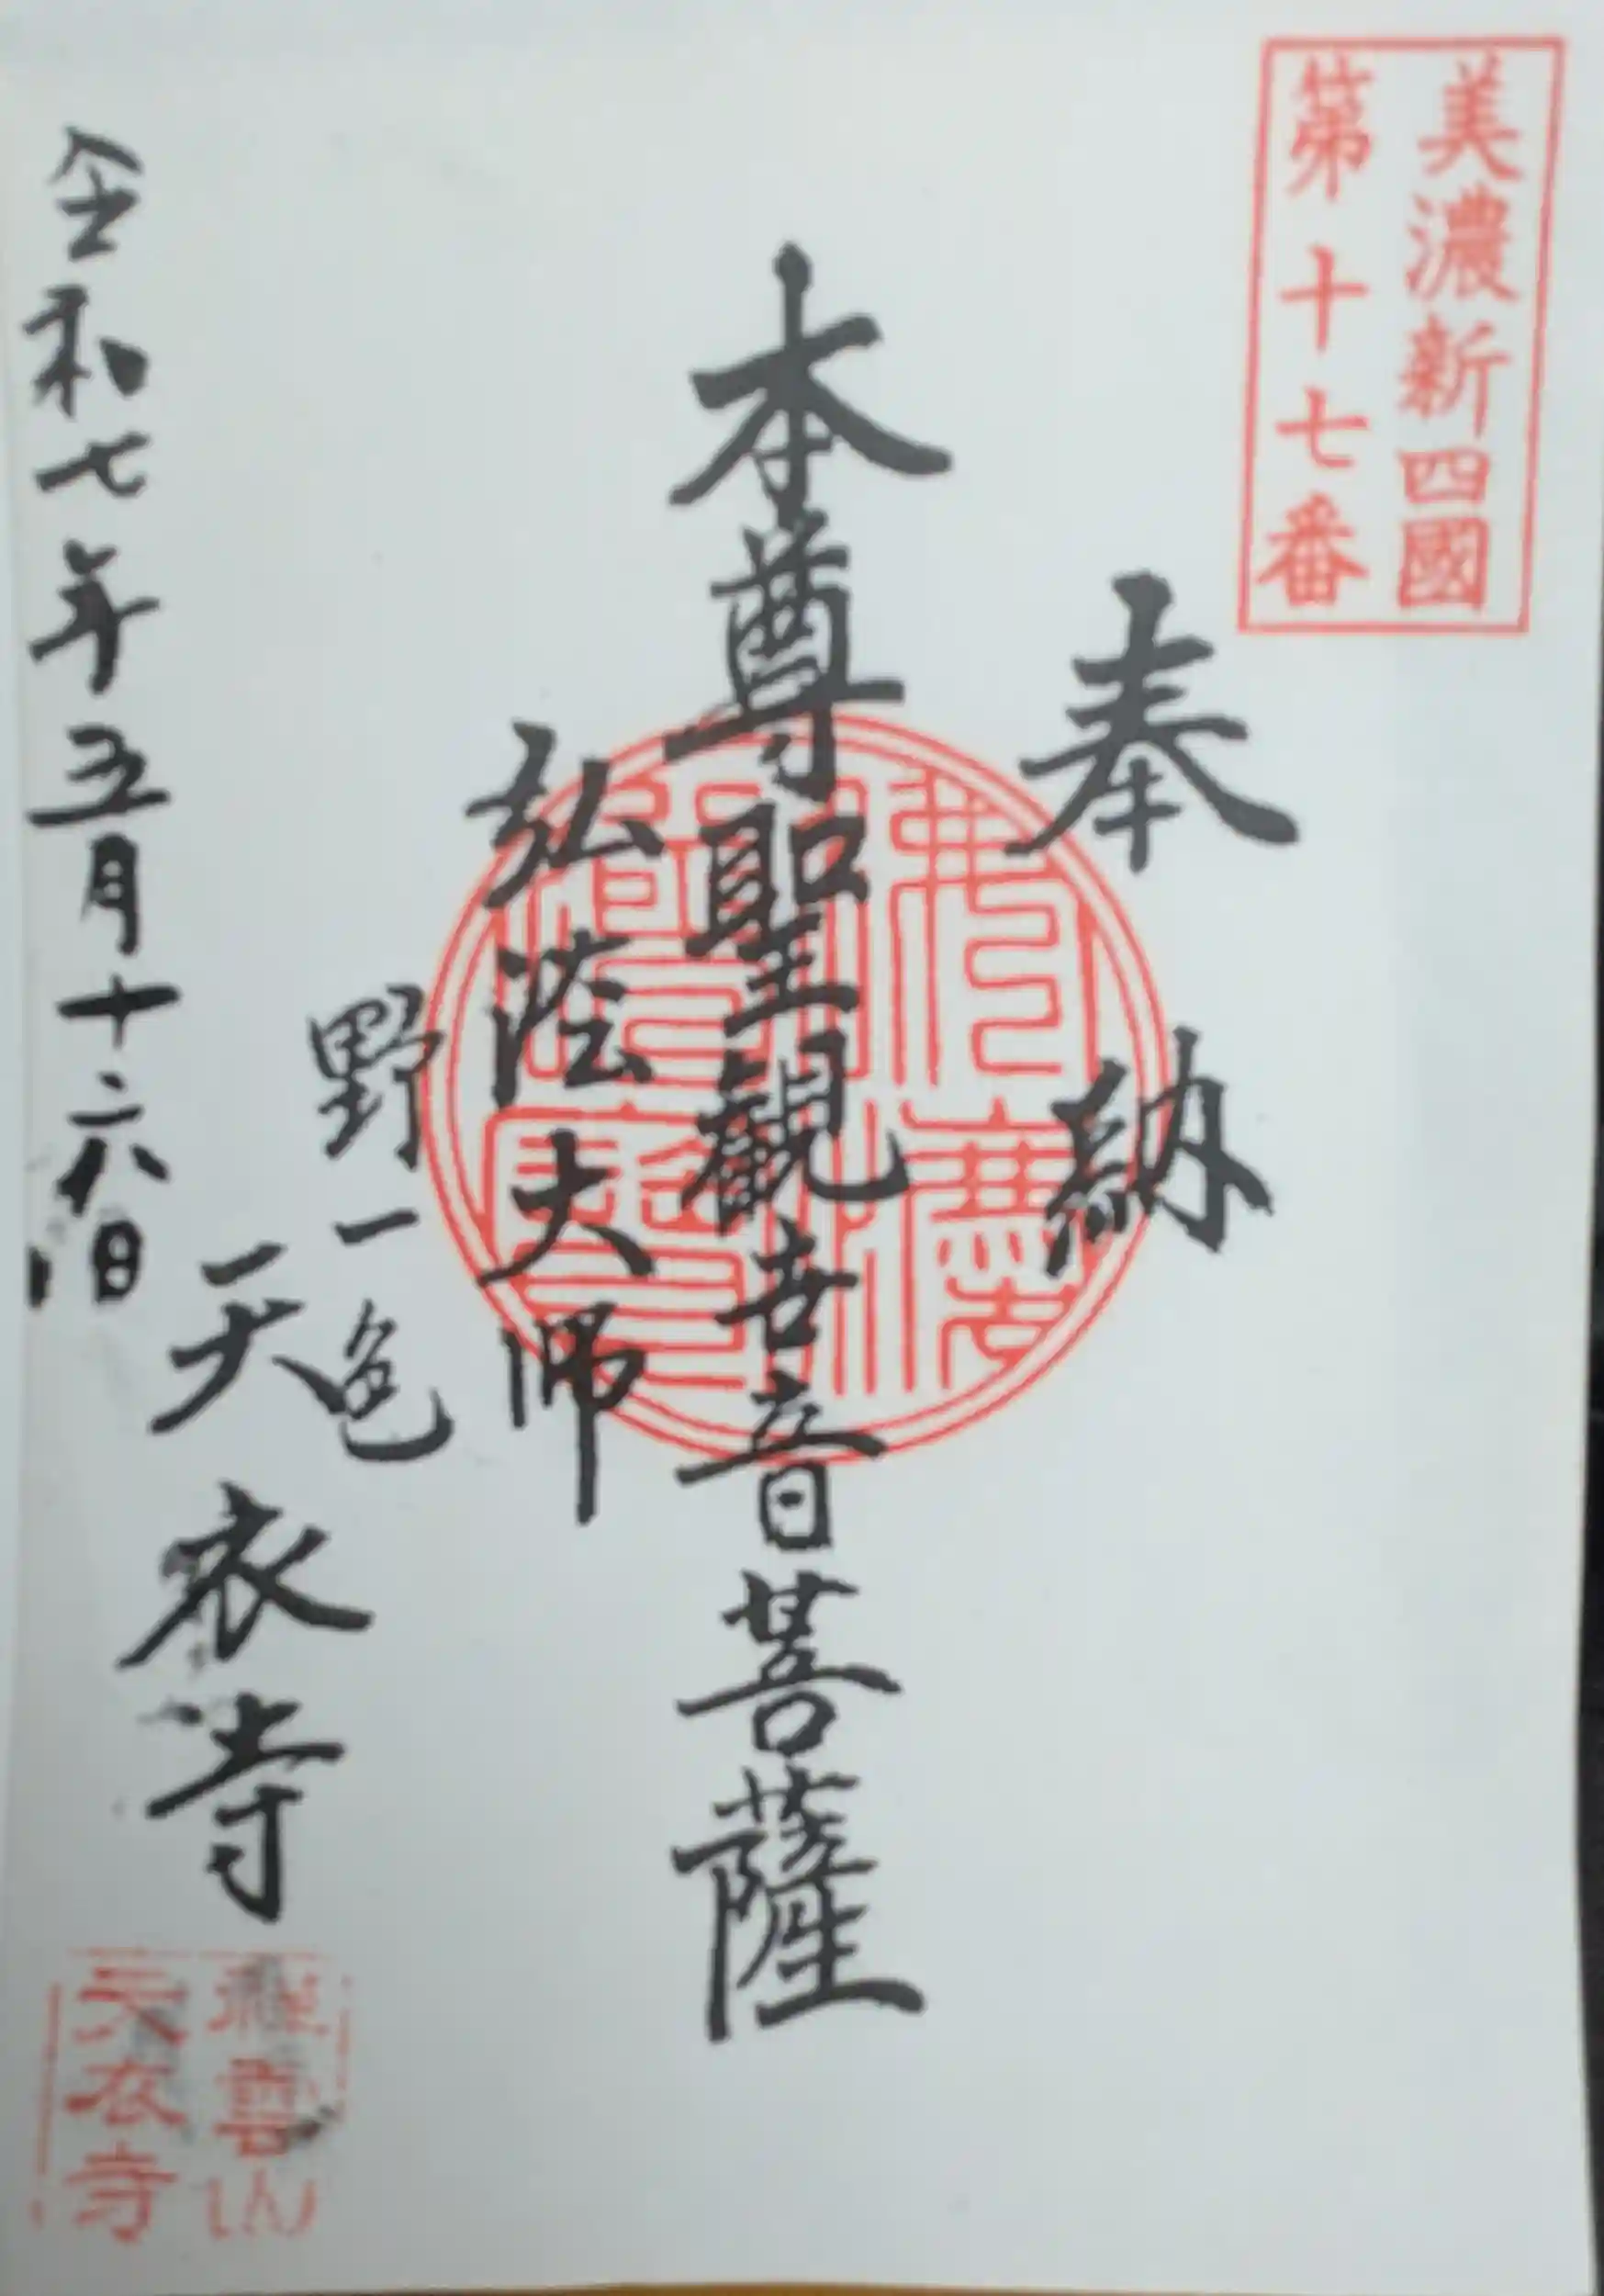 美濃新四國
第十七番
奉納
本尊聖観世音菩薩
弘法大师
野一色
天衣寺
令和七年五月十六日
雲山
天衣寺